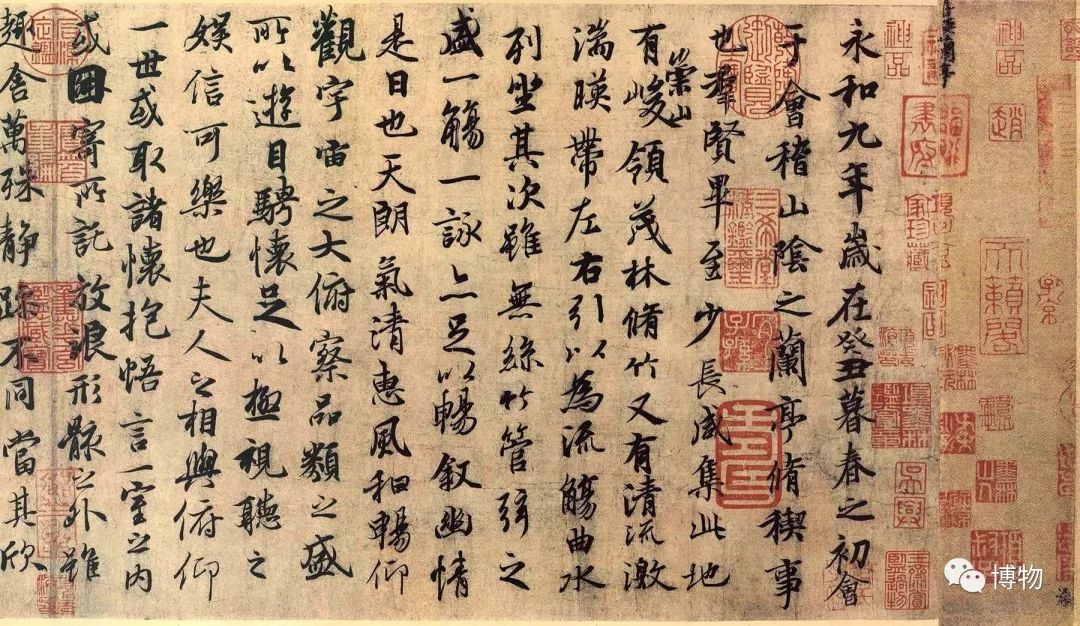 神品
趙
天籟閣
神品
家珍藏
永和九年歲在癸丑暮春之初會
于會稽山陰之蘭亭脩稧事
也羣賢畢至少長咸集此地
有崇山峻領茂林脩竹又有清流激
湍暎帶左右引以為流觴曲水
列坐其次雖無絲竹管弦之
盛一觴一詠亦足以暢叙幽情
是日也天朗氣清惠風和暢仰
觀宇宙之大俯察品類之盛
所以遊目騁懷足以極視聽之
娛信可樂也夫人之相與俯仰
一世或取諸懷抱悟言一室之內
或因寄所託放浪形骸之外雖
趣舍萬殊靜躁不同當其欣
博物